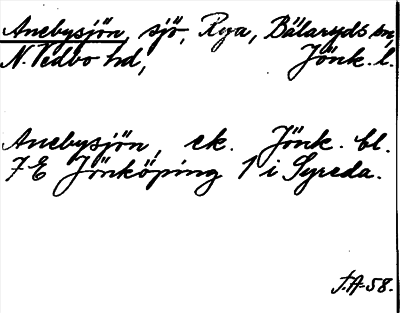 Anebysjön, sjö, Roja, Bälaryds sn,
N. Vedbo hd, Jönk. l.
Anebysjön, ek. Jönk. bl.
7 E Jönköping 1 i Syreda.
J.A-58.